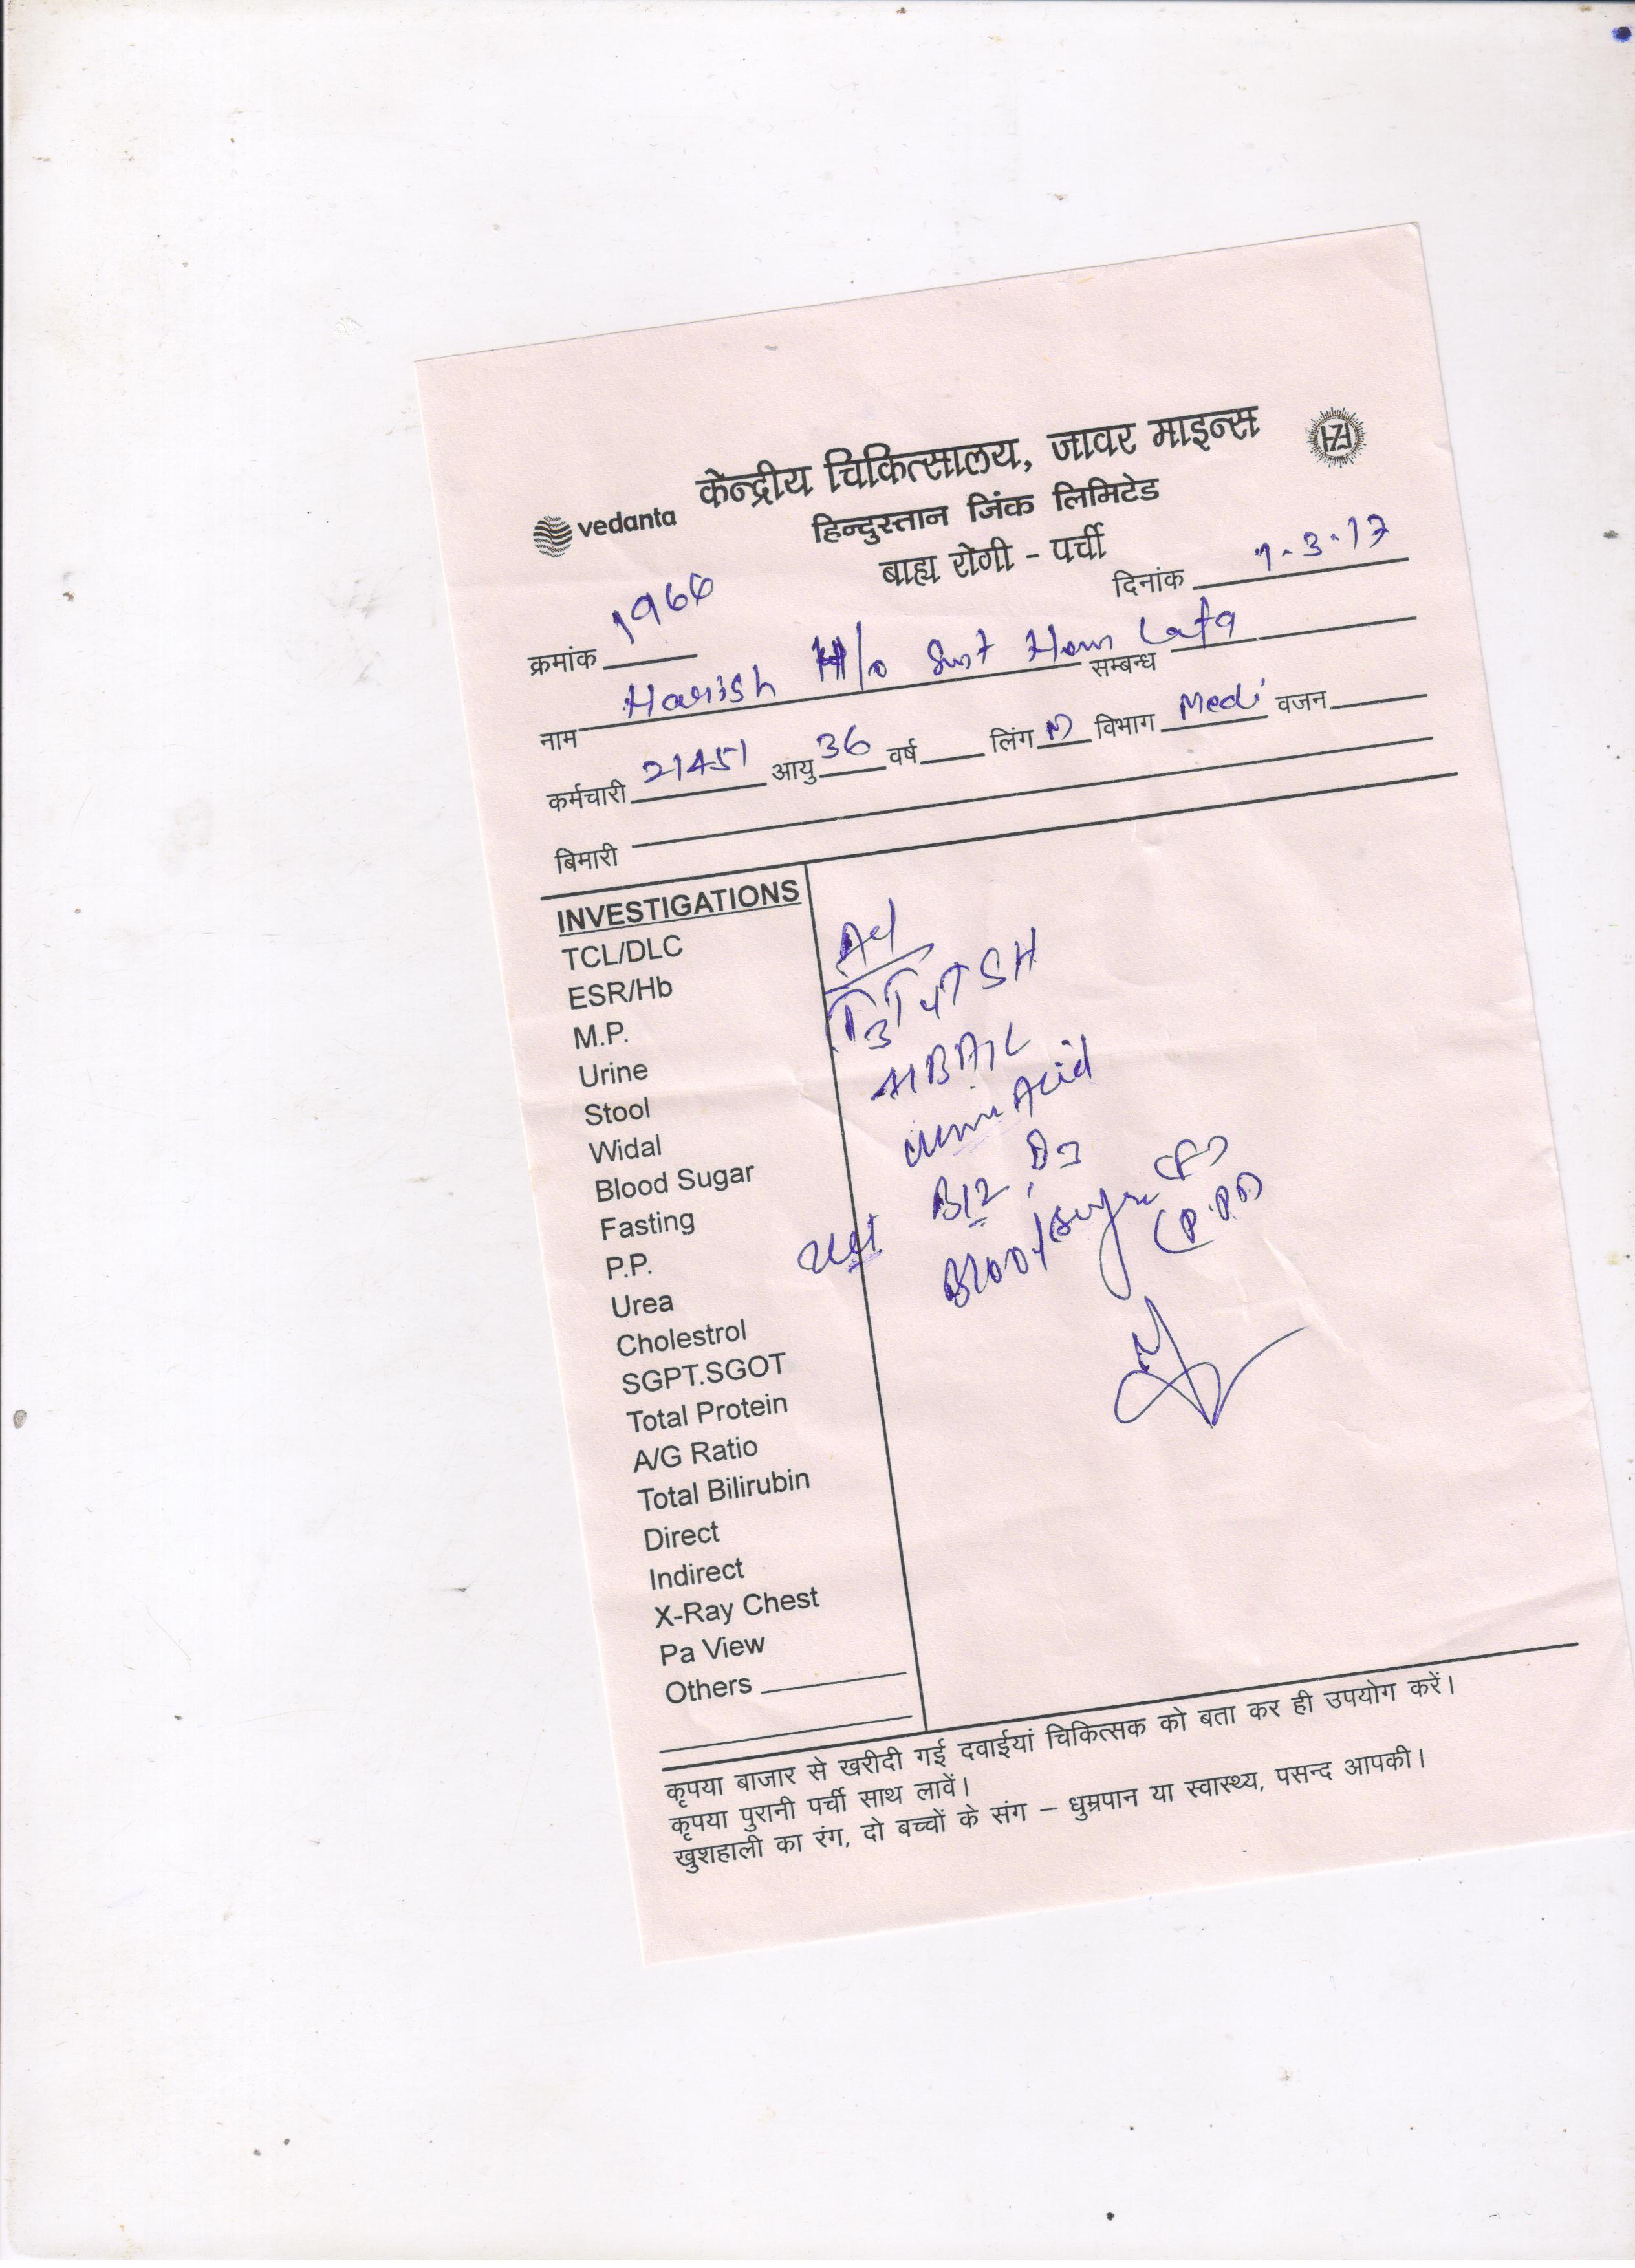 केन्द्रीय चिकित्सालय, जावर माइन्स
vedanta
हिन्दुस्तान जिंक लिमिटेड
बाह्य रोगी - पर्ची
दिनांक 1.3.17
क्रमांक 1966
नाम Harish H/o Smt Hem Lata सम्बन्ध
कर्मचारी 21451 आयु 36 वर्ष लिंग M विभाग Medi वजन
बिमारी
INVESTIGATIONS
TCL/DLC
ESR/Hb
M.P.
Urine
Stool
Widal
Blood Sugar
Fasting
P.P.
Urea
Cholestrol
SGPT.SGOT
Total Protein
A/G Ratio
Total Bilirubin
Direct
Indirect
X-Ray Chest
Pa View
Others
T3 T4 TSH
HBA1C
Acid
B12, D3
Blood Sugar (F)
(P.P)
कृपया बाजार से खरीदी गई दवाईयां चिकित्सक को बता कर ही उपयोग करें।
कृपया पुरानी पर्ची साथ लावें।
खुशहाली का रंग, दो बच्चों के संग – धुम्रपान या स्वास्थ्य, पसन्द आपकी।